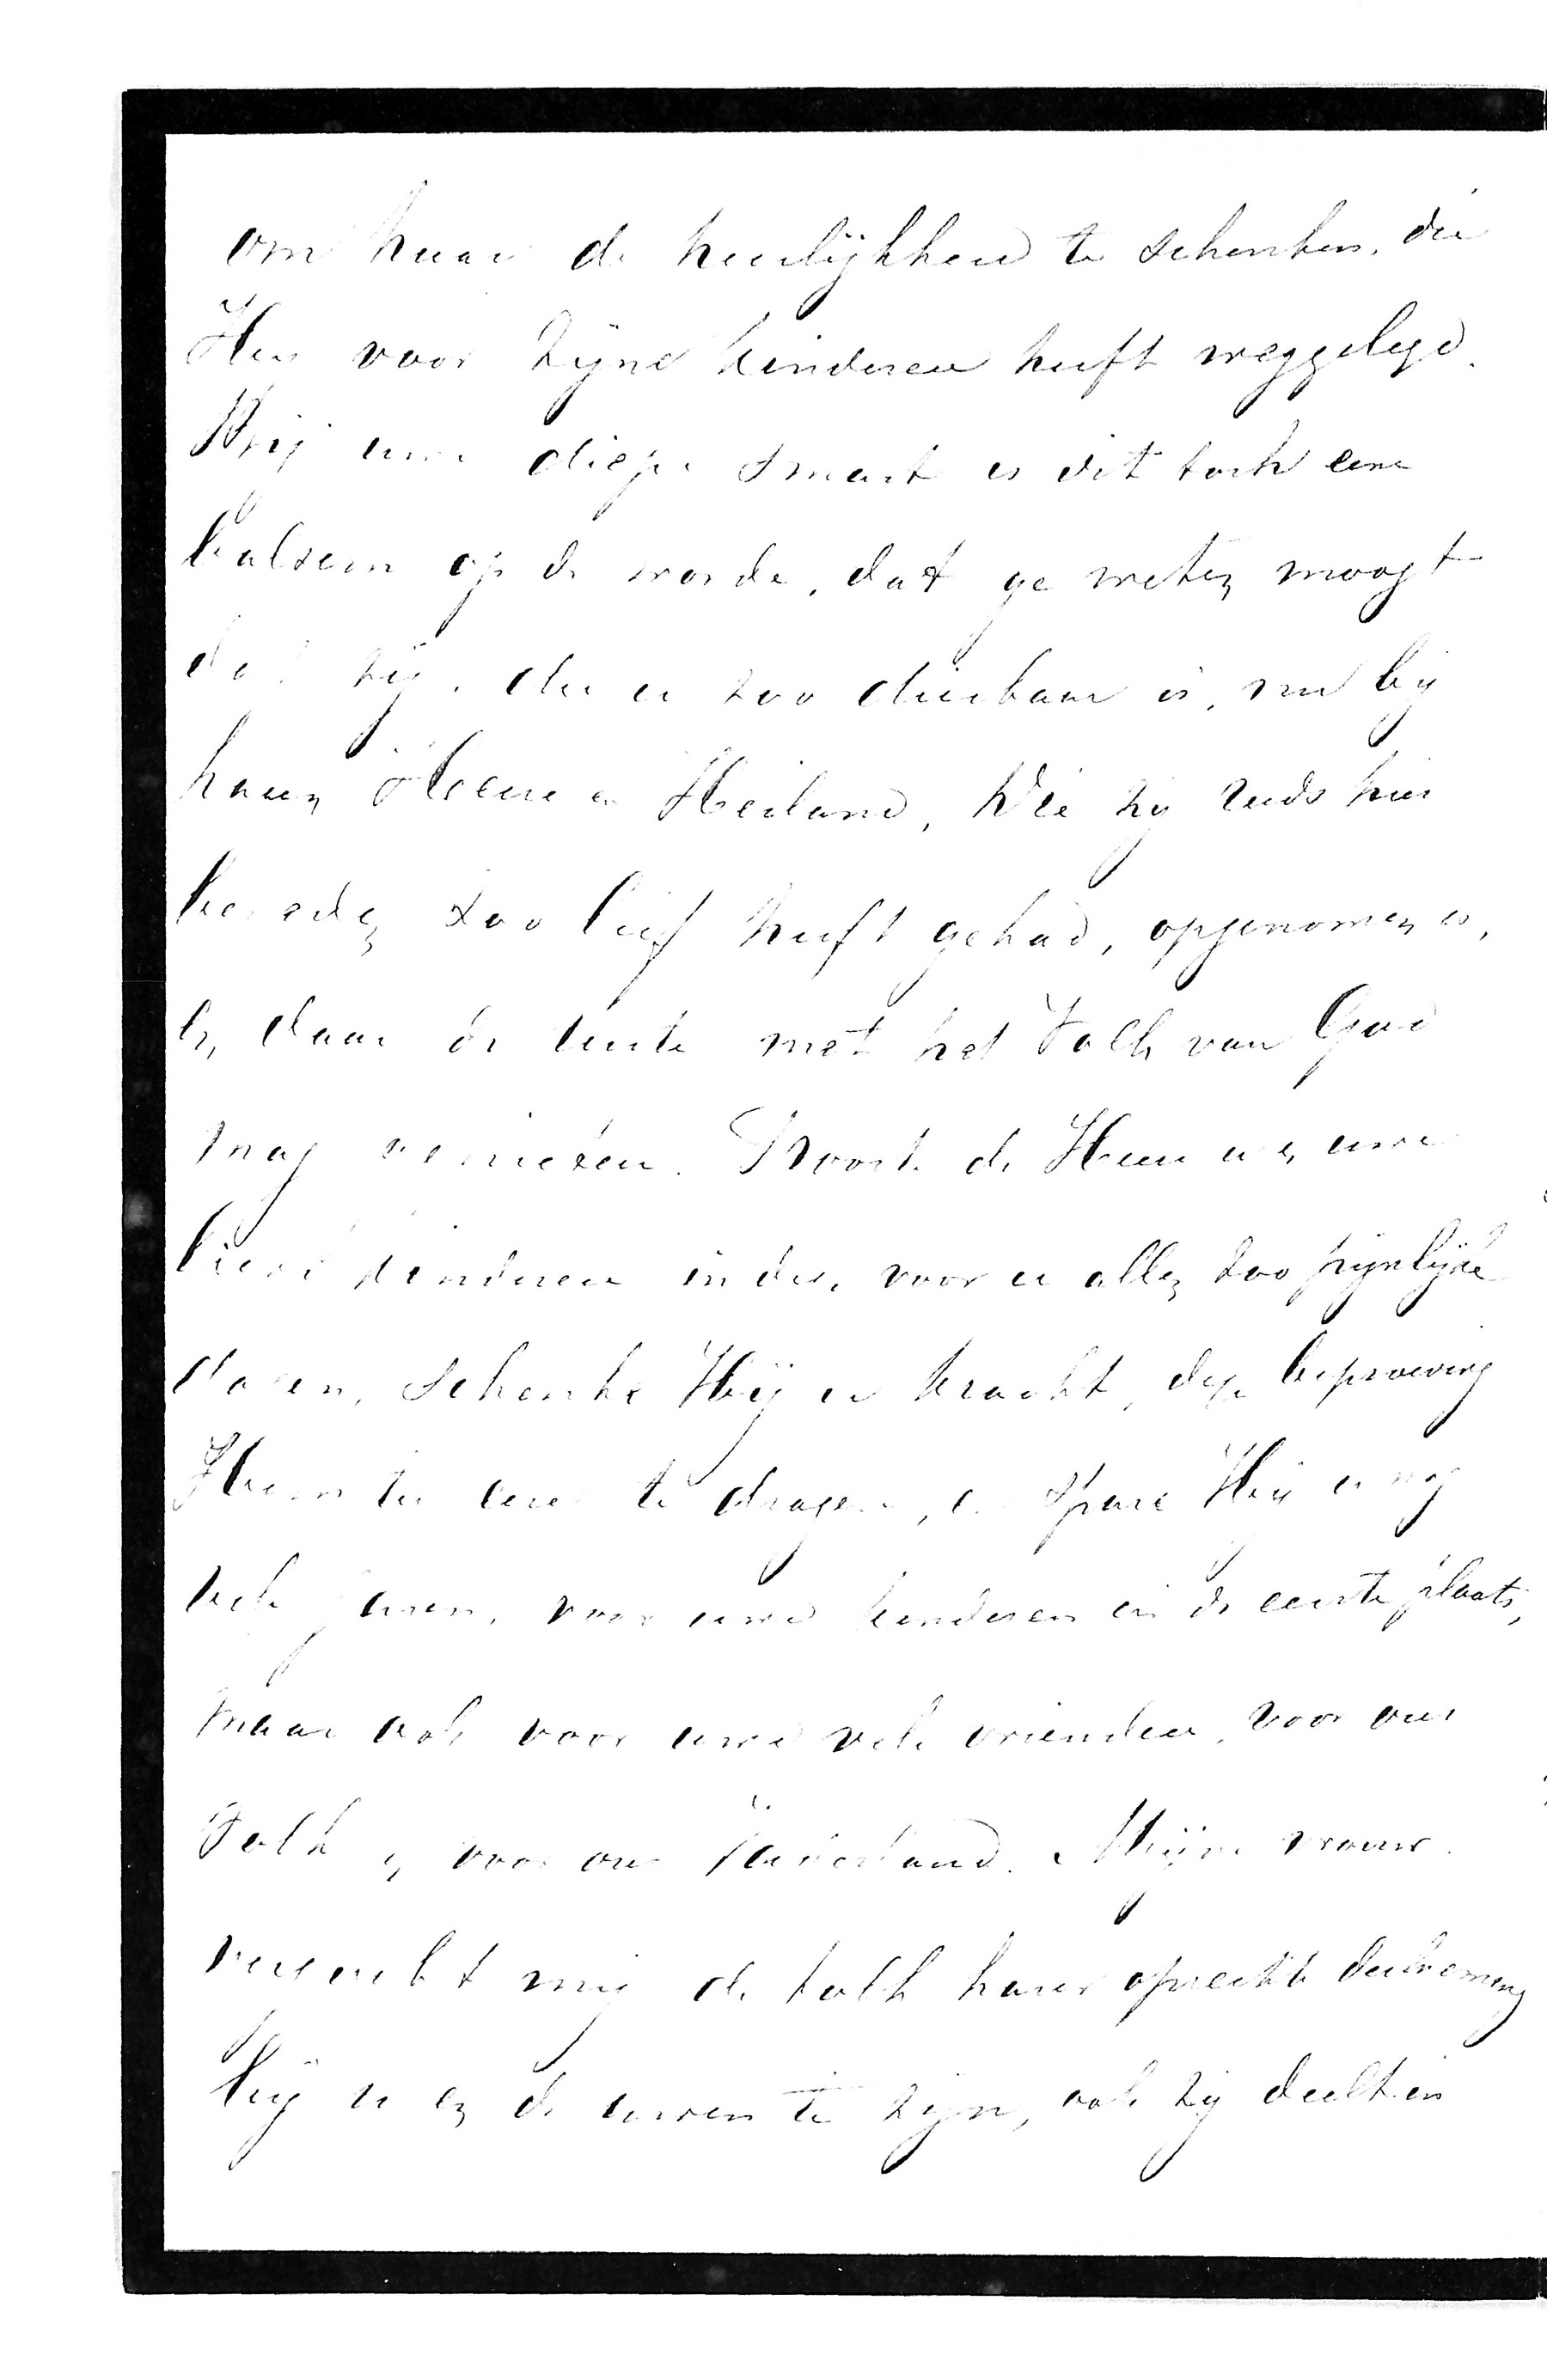 om haar de heerlijkheid te schenken, die
Hij voor zijne kinderen heeft weggelegd.
Bij uwe diepe smart is dit toch een
balsem op de wonde, dat ge weten moogt
dat zij, die u zoo dierbaar is, nu bij
haren Heere en Heiland, Die zij reeds hier
beneden zoo lief heeft gehad, opgenomen is,
en daar de ruste met het volk van God
mag genieten. Trooste de Heere u en uwe
lieve kinderen in deze, voor u allen zoo pijnlijke
dagen, schenke Hij u kracht, deze beproeving
Hem ter eere te dragen, en spare Hij u nog
vele jaren, voor uwe kinderen in de eerste plaats,
maar ook voor uwe vele vrienden, voor ons
volk en voor ons Vaderland. Mijne vrouw
verzoekt mij de tolk harer oprechte deelneming
bij u en de uwen te zijn, ook zij deelt in